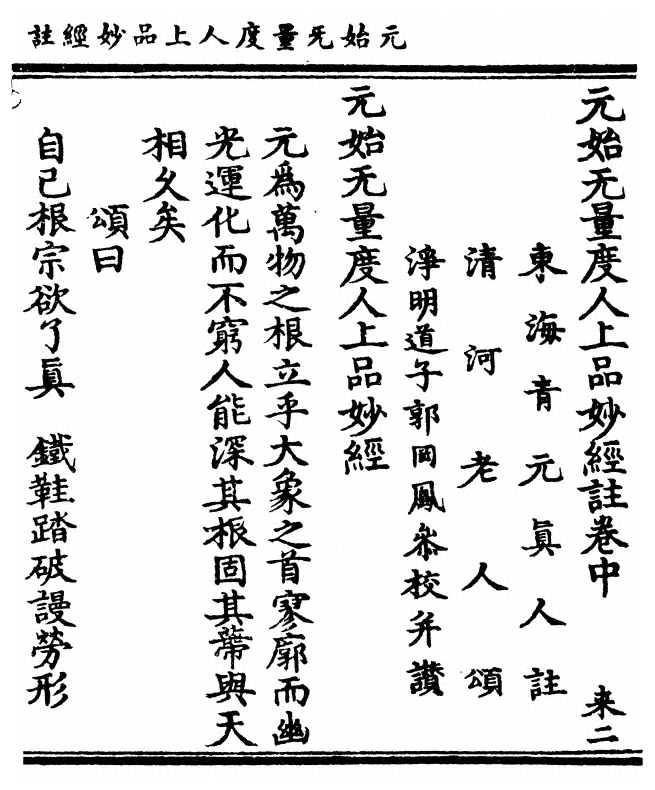 元始无量度人上品妙經註
元始无量度人上品妙經註卷中　来二
東海青元眞人註
清河老人頌
淨明道子郭岡鳳叅校并讚
元始无量度人上品妙經
元爲萬物之根立乎大象之首寥廓而幽
光運化而不窮人能深其根固其蔕與天
相久矣
頌曰
自己根宗欲了眞　鐵鞋踏破謾勞形